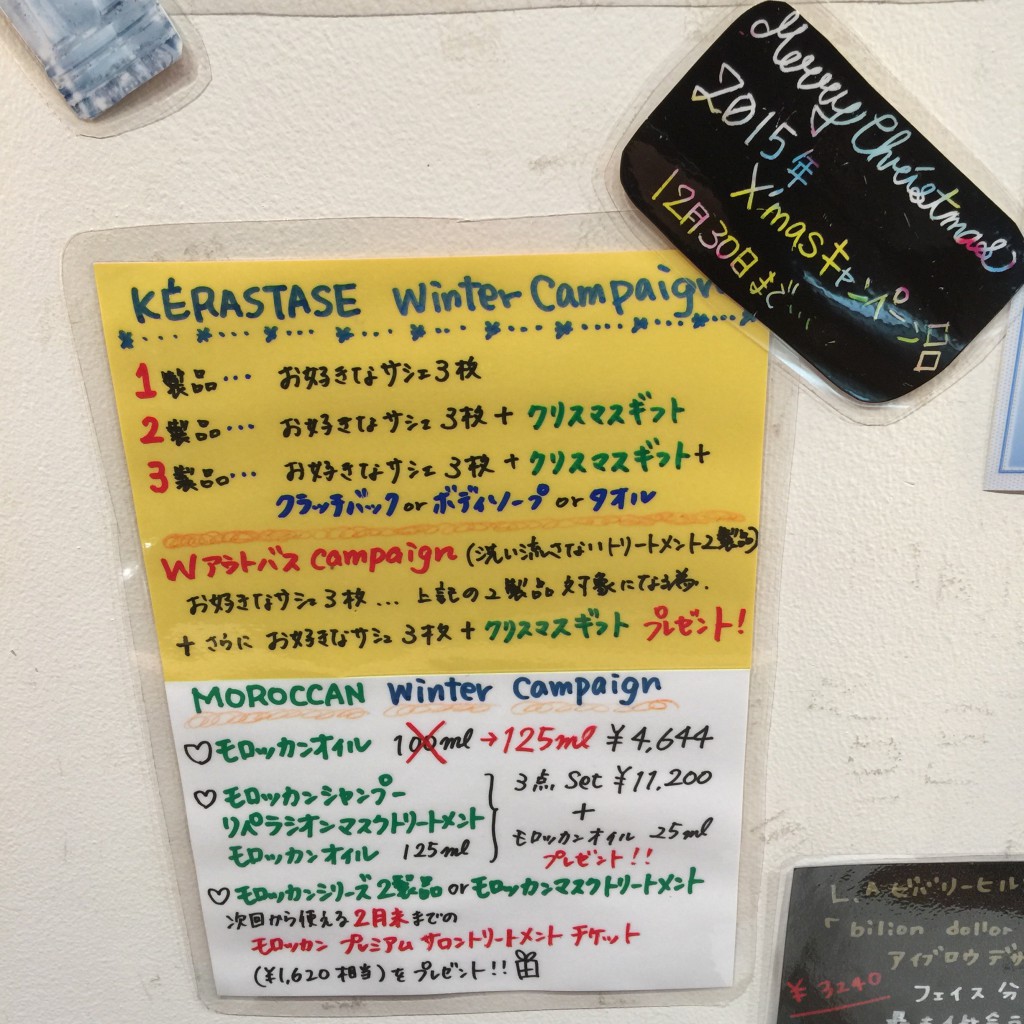 Merry Christmas
2015年
X'masキャンペーン品
12月30日まで...
KÉRASTASE Winter Campaign
1製品… お好きなサシェ3枚
2製品… お好きなサシェ3枚+クリスマスギフト
3製品… お好きなサシェ3枚+クリスマスギフト+
クラッチバックorボディソープorタオル
Wアウトバス campaign (洗い流さないトリートメント2製品)
お好きなサシェ3枚… 上記の2製品対象になる為.
+さらにお好きなサシェ3枚+クリスマスギフト プレゼント!
MOROCCAN Winter Campaign
♡モロッカンオイル 100ml→125ml ¥4,644
♡モロッカンシャンプー
リペラシオンマスクトリートメント
モロッカンオイル 125ml
3点 Set ¥11,200
+
モロッカンオイル 25ml
プレゼント!!
♡モロッカンシリーズ2製品orモロッカンマスクトリートメント
次回から使える2月末までの
モロッカン プレミアム サロントリートメント チケット
(¥1,620相当)をプレゼント!!
L.Aビバリーヒル
「bilion dollor
アイブロウデザ
¥3240 フェイス分